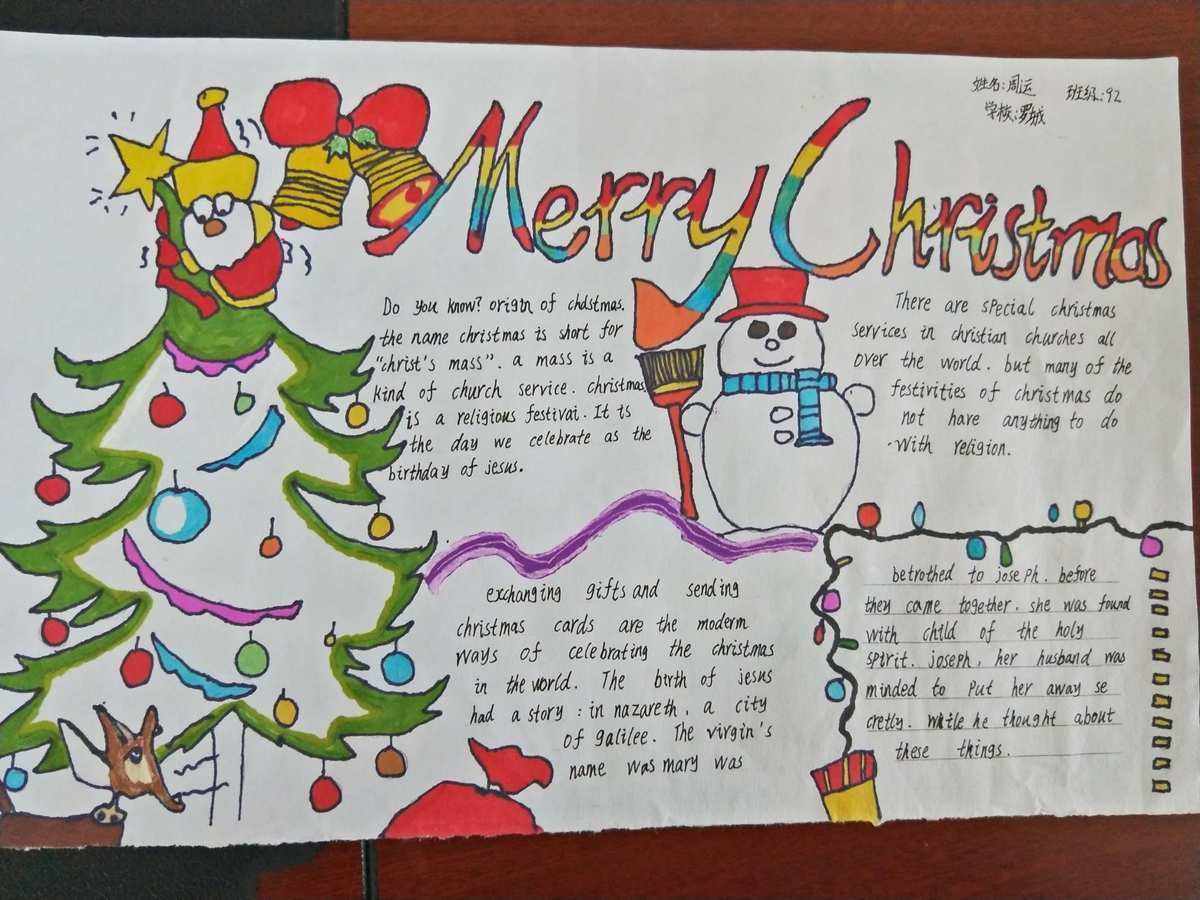 姓名:周运 班级:92
学校:罗城
Merry Christmas
Do you know? origin of chdstmas.
the name christmas is short for
"christ's mass". a mass is a
kind of church service. christmas
is a religious festivai. It is
the day we celebrate as the
birthday of jesus.
There are special christmas
services in christian churches all
over the world. but many of the
festivities of christmas do
not have anything to do
with religion.
exchanging gifts and sending
christmas cards are the modern
ways of celebrating the christmas
in the world. The birth of jesus
had a story : in nazareth, a city
of galilee. The virgin's
name was mary was
betrothed to joseph. before
they came together. she was found
with child of the holy
spirit. joseph, her husband was
minded to put her away se
cretly. while he thought about
these things.